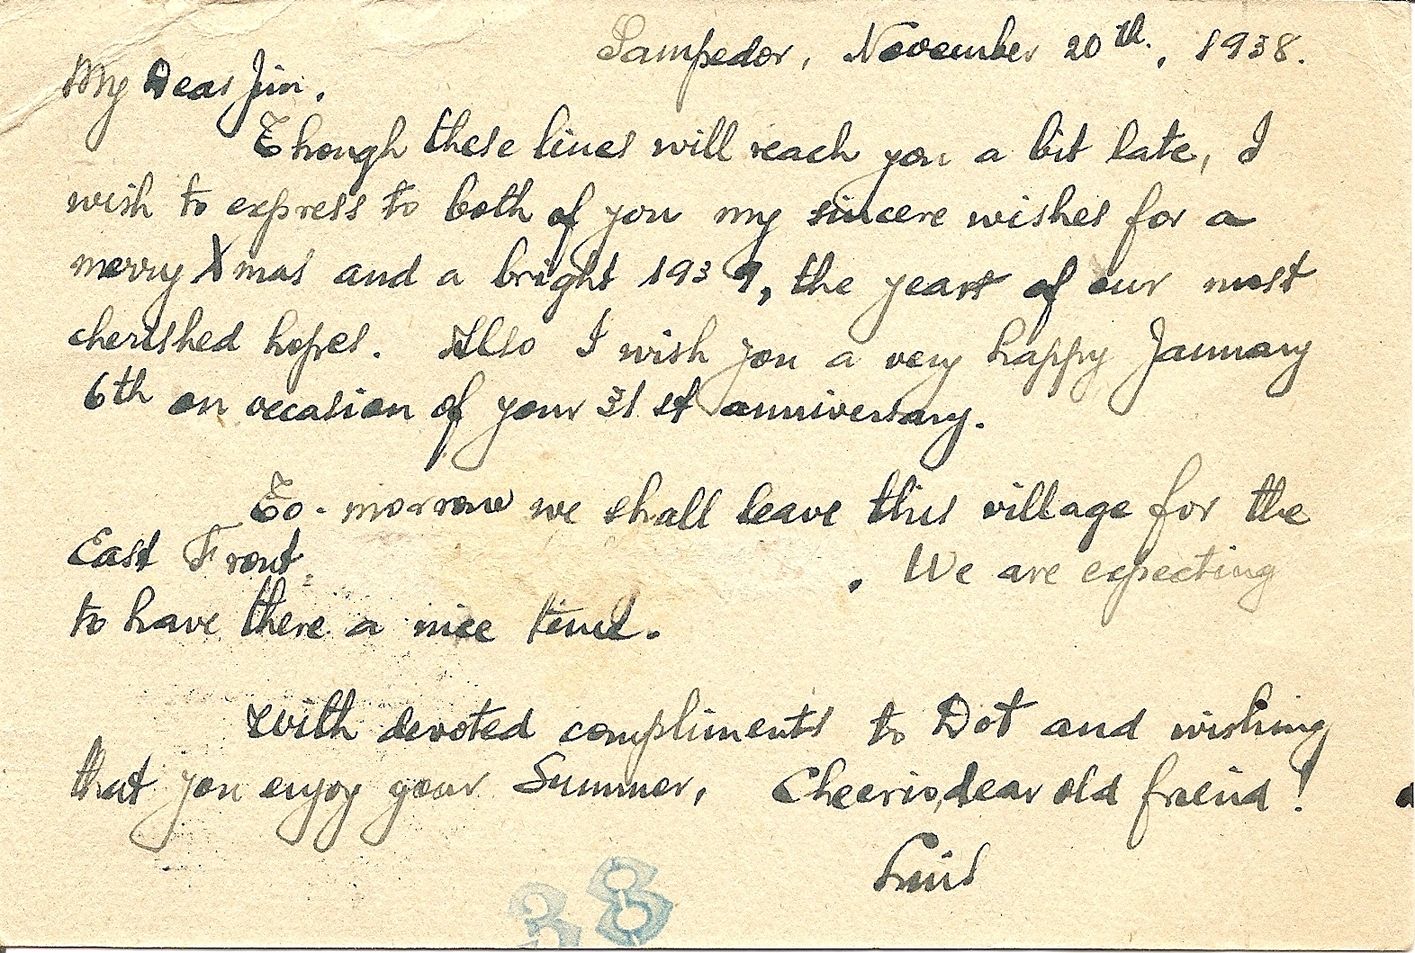 Sampedor, November 20th., 1938.
My Dear Jim.
Though these lines will reach you a bit late, I
wish to express to both of you my sincere wishes for a
merry Xmas and a bright 1939, the year of our most
cherished hopes. Also I wish you a very happy January
6th on occasion of your 31st anniversary.
To-morrow we shall leave this village for the
East Front. We are expecting
to have there a nice time.
With devoted compliments to Dot and wishing
that you enjoy your Summer, Cheerio, dear old friend!
Luis
38